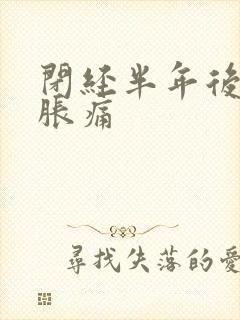 閉經半年後
脹痛
尋找失落的愛